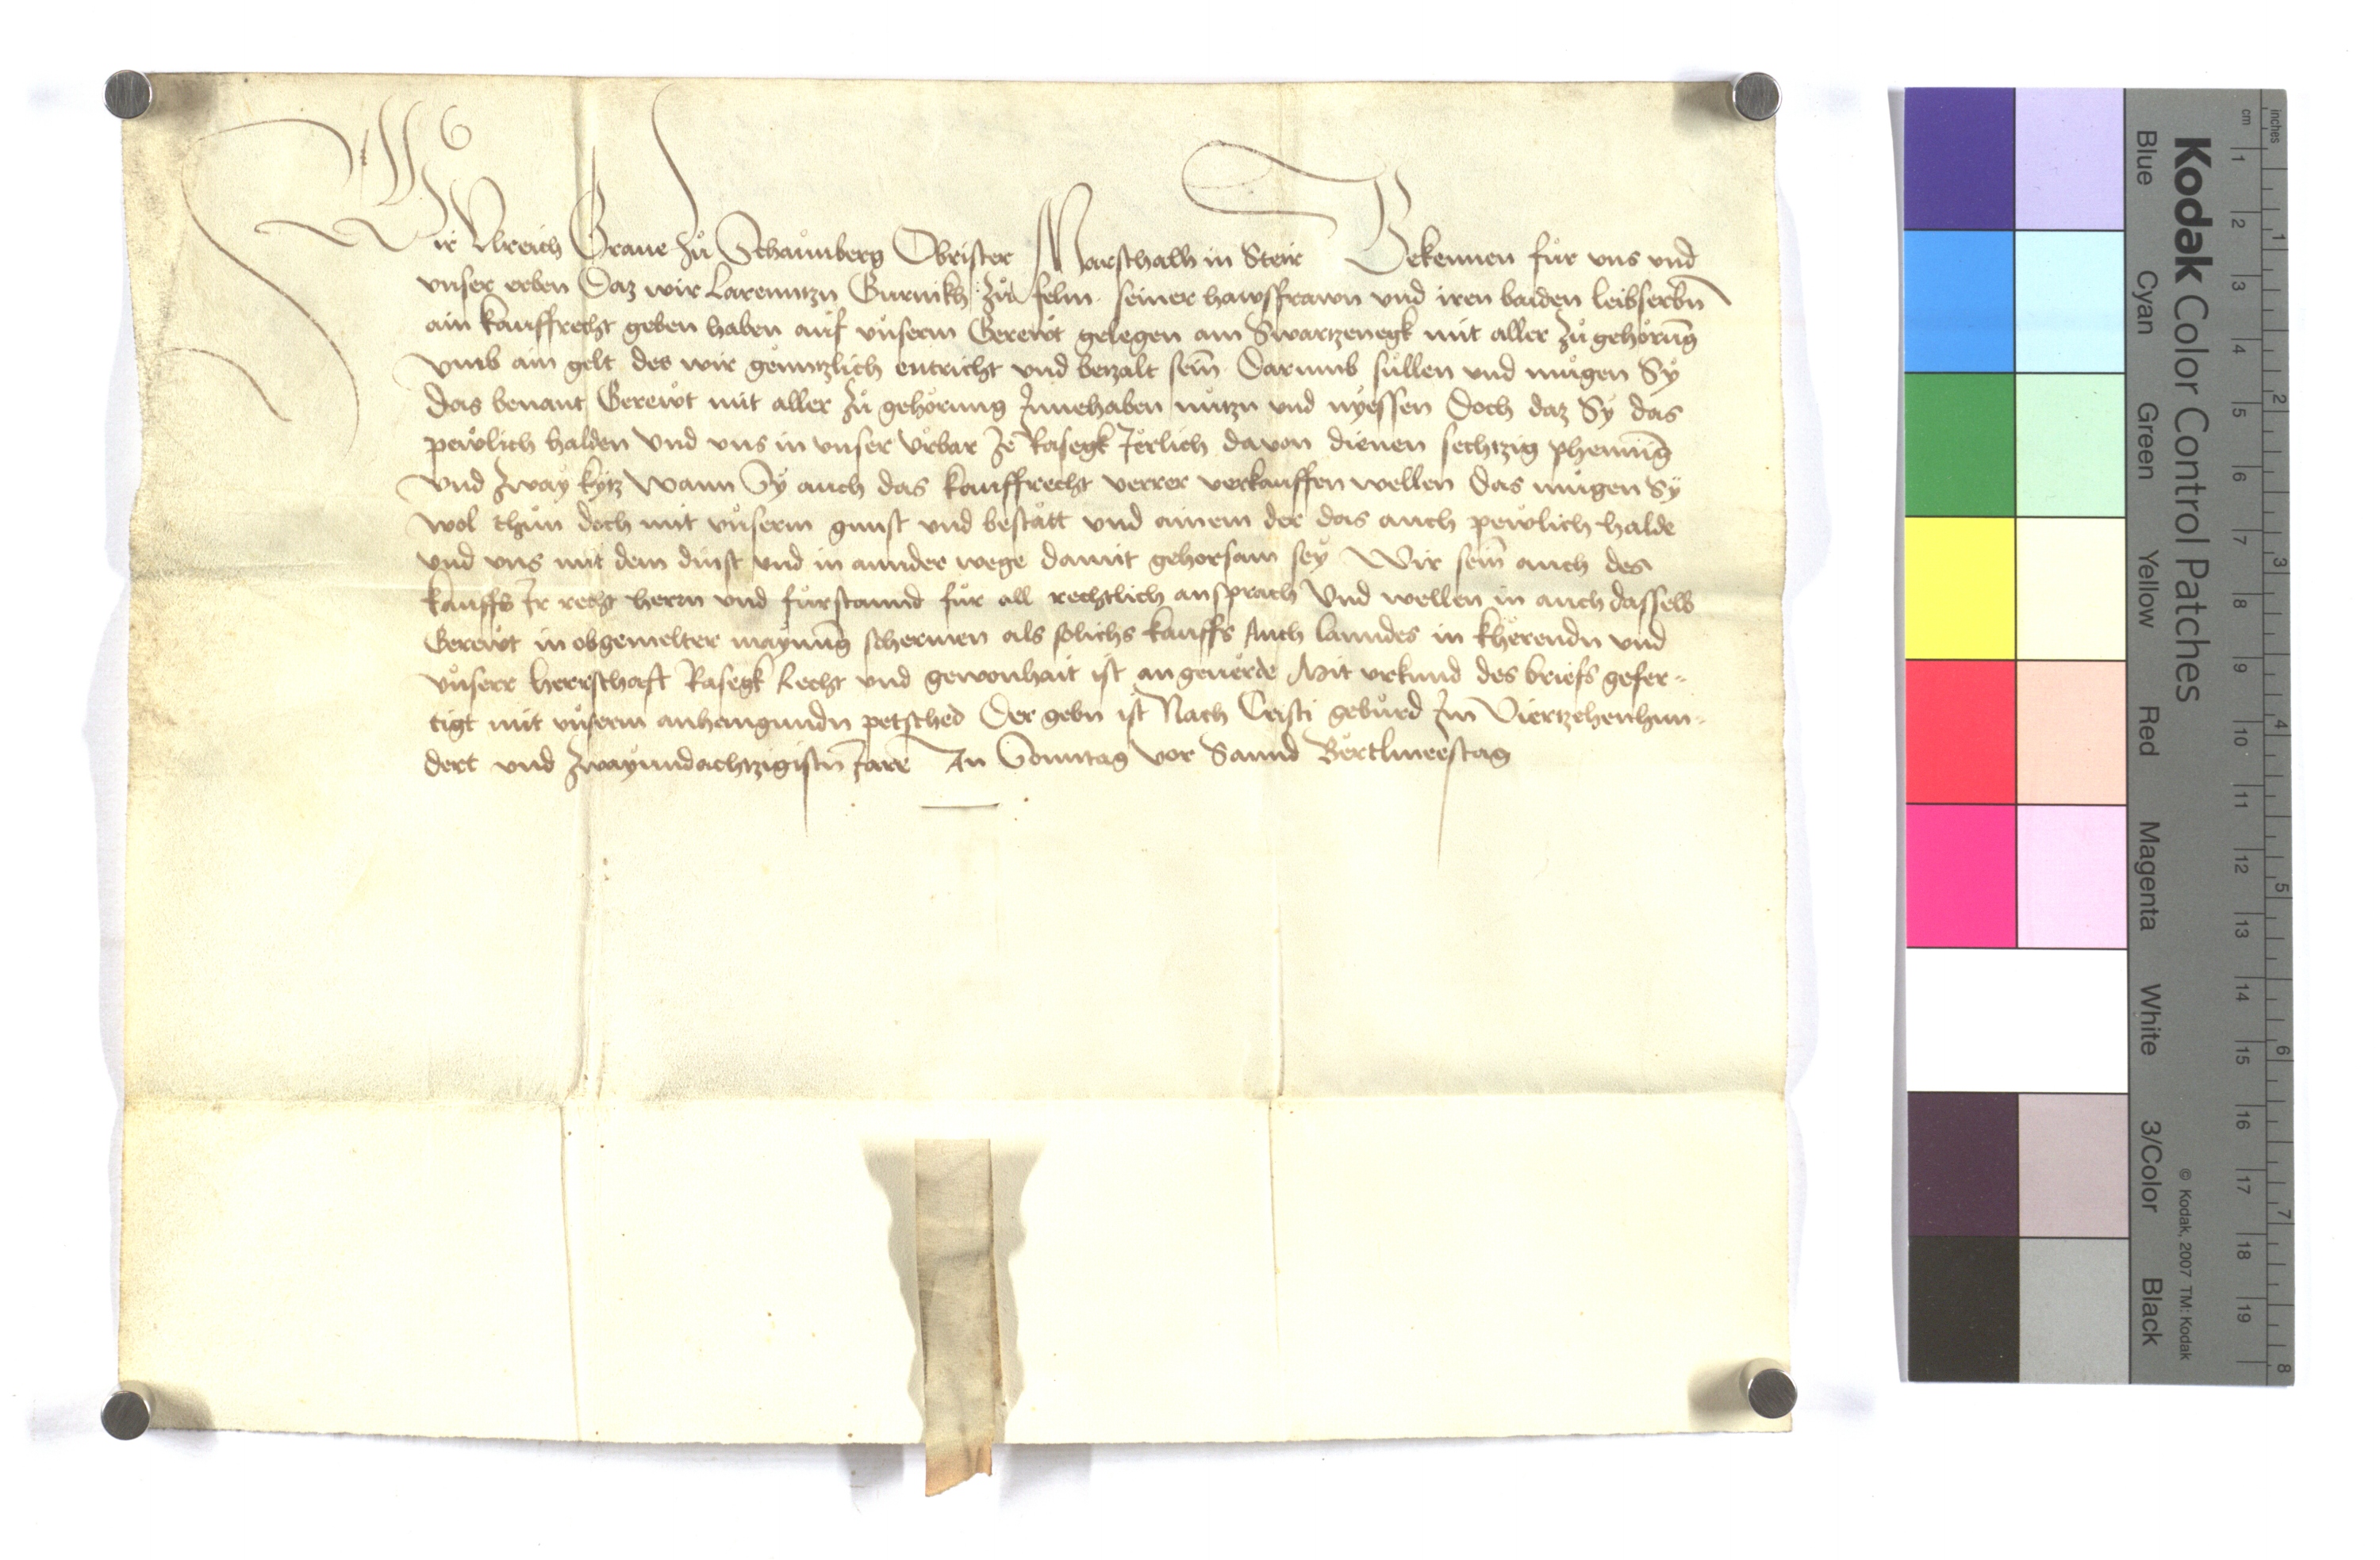 Wir Vlreich Graue zů Schawnberg Obrister Marschalh in Steir Bekennen für vns vnd
vnser erben Daz wir Larenntzn Gurnikh zů seiner hawsfrawn vnd iren baiden leibserbn̄
ain kauffrecht geben haben auf vnserm Gerewt gelegen am Swartzenegk mit aller zůgehörūg
vmb ain gelt des wir genntzlich entricht vnd betzalt sein̄ Darumb süllen vnd mügen Sÿ
das benant Gerewt mit aller zů gehörung Innehaben nützn vnd nyessen Doch daz Sÿ das
pewlich halden Vnd vns in vnser vrbar ze Rasegk Jerlich dauon dienen sechtzig phennīg
Vnd zway kytz Wann Sÿ auch das kauffrecht verrer verkauffen wellen Das mügen Sÿ
wol thůn doch mit vnserm gunst vnd bestätt vnd ainem der das auch pewlich halde
vnd vns mit dem dinst vnd in annder wege damit gehorsam sey Wir sein̄ auch des
kauffs Ir recht herrn vnd fürstannd für all rechtlich ansprach Vnd wellen in auch dasselb
Gerewt in obgemelter maynūg schermen als solichs kauffs Auch lanndes in kherendn vnd
vnserr herrschaft Rasegk Recht vnd gewonhait ist angeuerde Mit vrkund des briefs gefer-
tigt mit vnserm anhangundn petsched Der gebn ist Nach Cristi geburd Im Viertzehenhun-
dert vnd zwayundachtzigistn̄ Jare An Sonntag vor Sannd Bertlmeestag
Kodak Color Control Patches
© Kodak, 2007 TM: Kodak
Blue Cyan Green Yellow Red Magenta White 3/Color Black
inches 1 2 3 4 5 6 7 8
cm 1 2 3 4 5 6 7 8 9 10 11 12 13 14 15 16 17 18 19